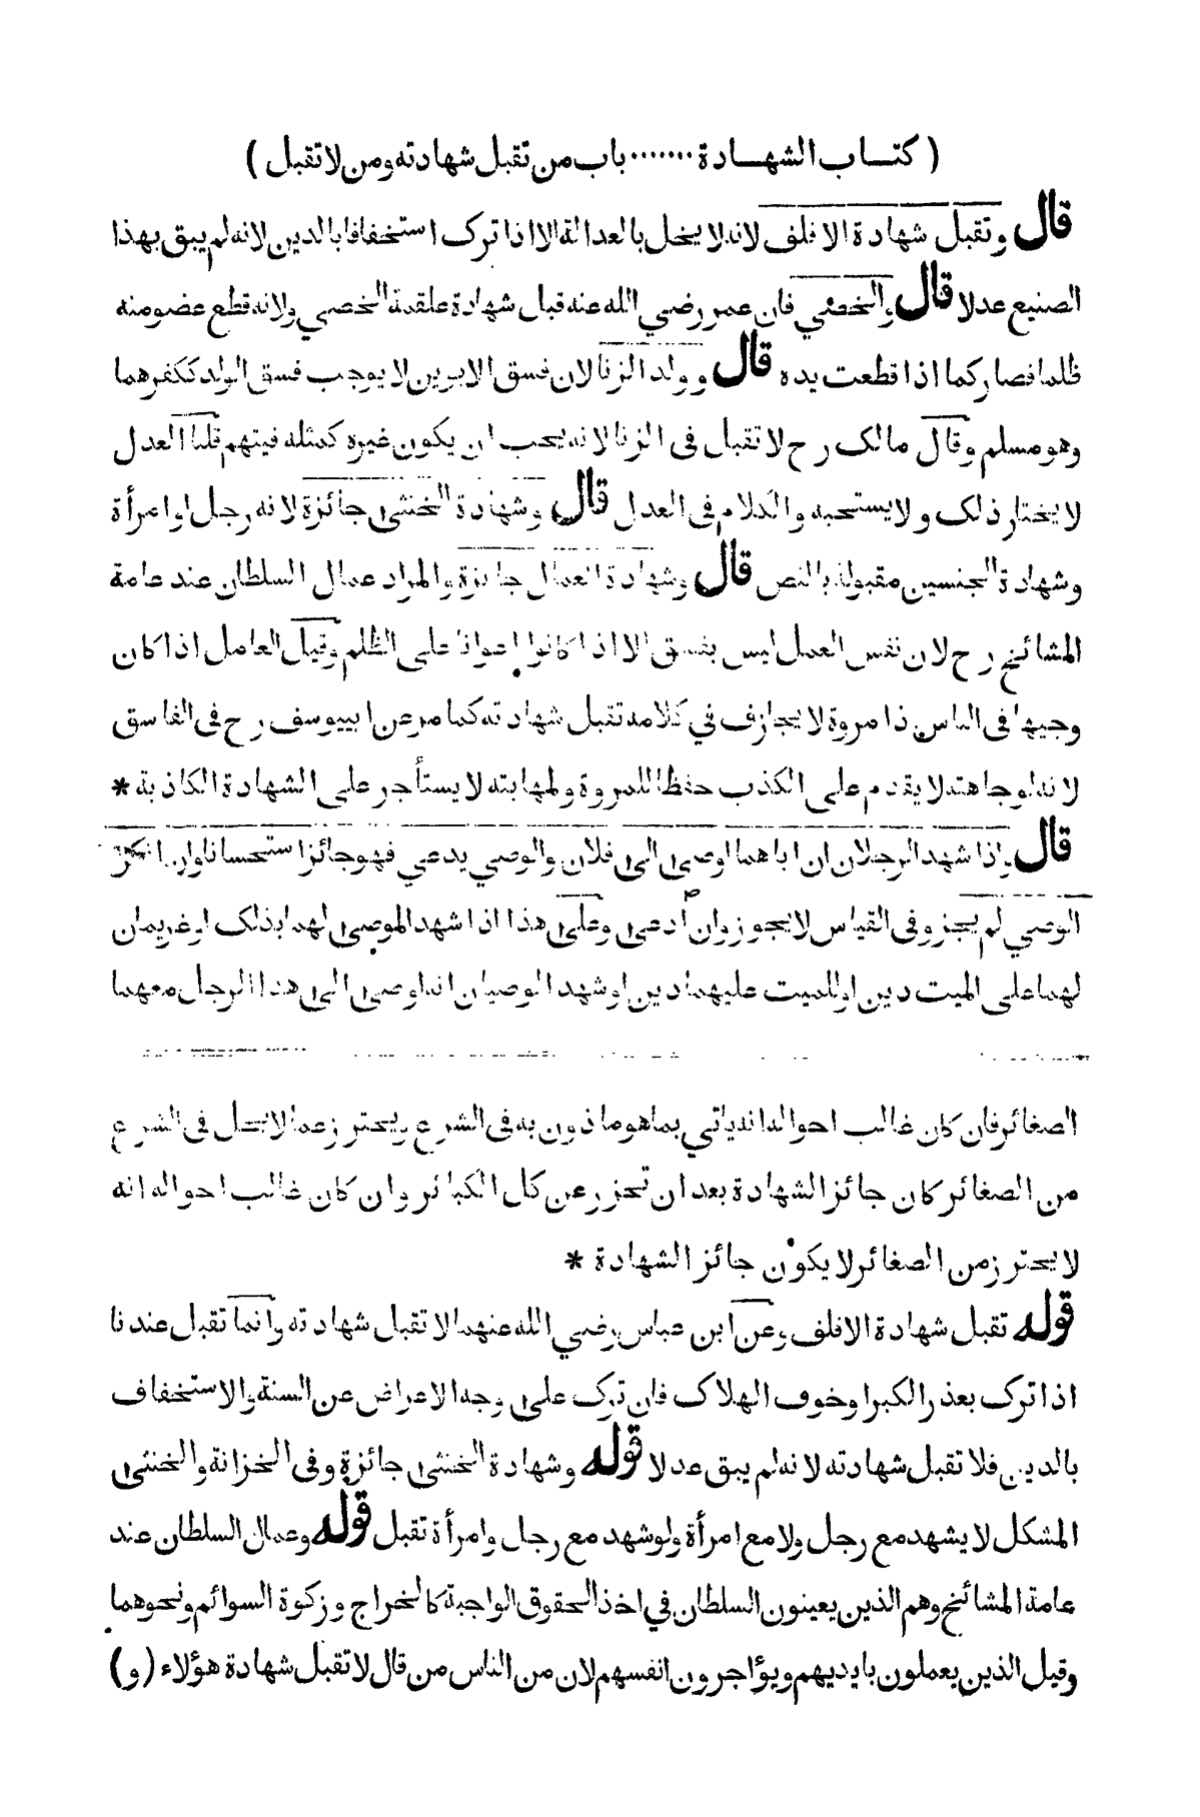 ( كتاب الشهادة ....... باب من تقبل شهادته ومن لا تقبل )
قال وتقبل شهادة الاقلف لانه لا يخل بالعدالة الا اذا ترك استخفافا بالدين لانه لم يبق بهذا
الصنيع عدلا قال والخصي فان عمر رضي الله عنه قبل شهادة علقمة الخصي ولانه قطع عضو منه
ظلما فصار كما اذا قطعت يده قال وولد الزنا لان فسق الابوين لا يوجب فسق الولد ككفرهما
وهو مسلم وقال مالك رح لا تقبل فى الزنا لانه يحب ان يكون غيره كمثله فيتهم قلنا العدل
لا يختار ذلك ولا يستحبه والكلام فى العدل قال وشهادة الخنثى جائزة لانه رجل او امرأة
وشهادة الجنسين مقبولة بالنص قال وشهادة العمال جائزة والمراد عمال السلطان عند عامة
المشائخ رح لان نفس العمل ليس بفسق الا اذا كانوا اعوانا على الظلم وقيل العامل اذا كان
وجيها فى الناس ذا مروة لا يجازف في كلامه تقبل شهادته كما مر عن ابييوسف رح فى الفاسق
لانه لوجاهته لا يقدم على الكذب حفظا للمروة ولمهابته لا يستأجر على الشهادة الكاذبة *
قال واذا شهد الرجلان ان اباهما اوصى الى فلان والوصي يدعي فهو جائز استحسانا وان انكر
الوصي لم يجز وفى القياس لا يجوز وان ادعى وعلى هذا اذا شهد الموصى لهما بذلك او غريمان
لهما على الميت دين او للميت عليهما دين او شهد الوصيان انه اوصى الى هذا الرجل معهما
الصغائر فان كان غالب احواله انه ياتي بما هو ماذون به فى الشرع ويحترز عما لا يحل فى الشرع
من الصغائر كان جائز الشهادة بعد ان تحرز عن كل الكبائر وان كان غالب احواله انه
لا يحترز من الصغائر لا يكون جائز الشهادة *
قوله تقبل شهادة الاقلف وعن ابن عباس رضي الله عنهما لا تقبل شهادته وانما تقبل عندنا
اذا ترك بعذر الكبر او خوف الهلاك فان ترك على وجه الاعراض عن السنة والاستخفاف
بالدين فلا تقبل شهادته لانه لم يبق عدلا قوله وشهادة الخنثى جائزة وفى الخزانة والخنثى
المشكل لا يشهد مع رجل ولا مع امرأة ولو شهد مع رجل وامرأة تقبل قوله وعمال السلطان عند
عامة المشائخ وهم الذين يعينون السلطان في اخذ الحقوق الواجبة كالخراج وزكوة السوائم ونحوهما
وقيل الذين يعملون بايديهم ويؤاجرون انفسهم لان من الناس من قال لا تقبل شهادة هؤلاء (و)